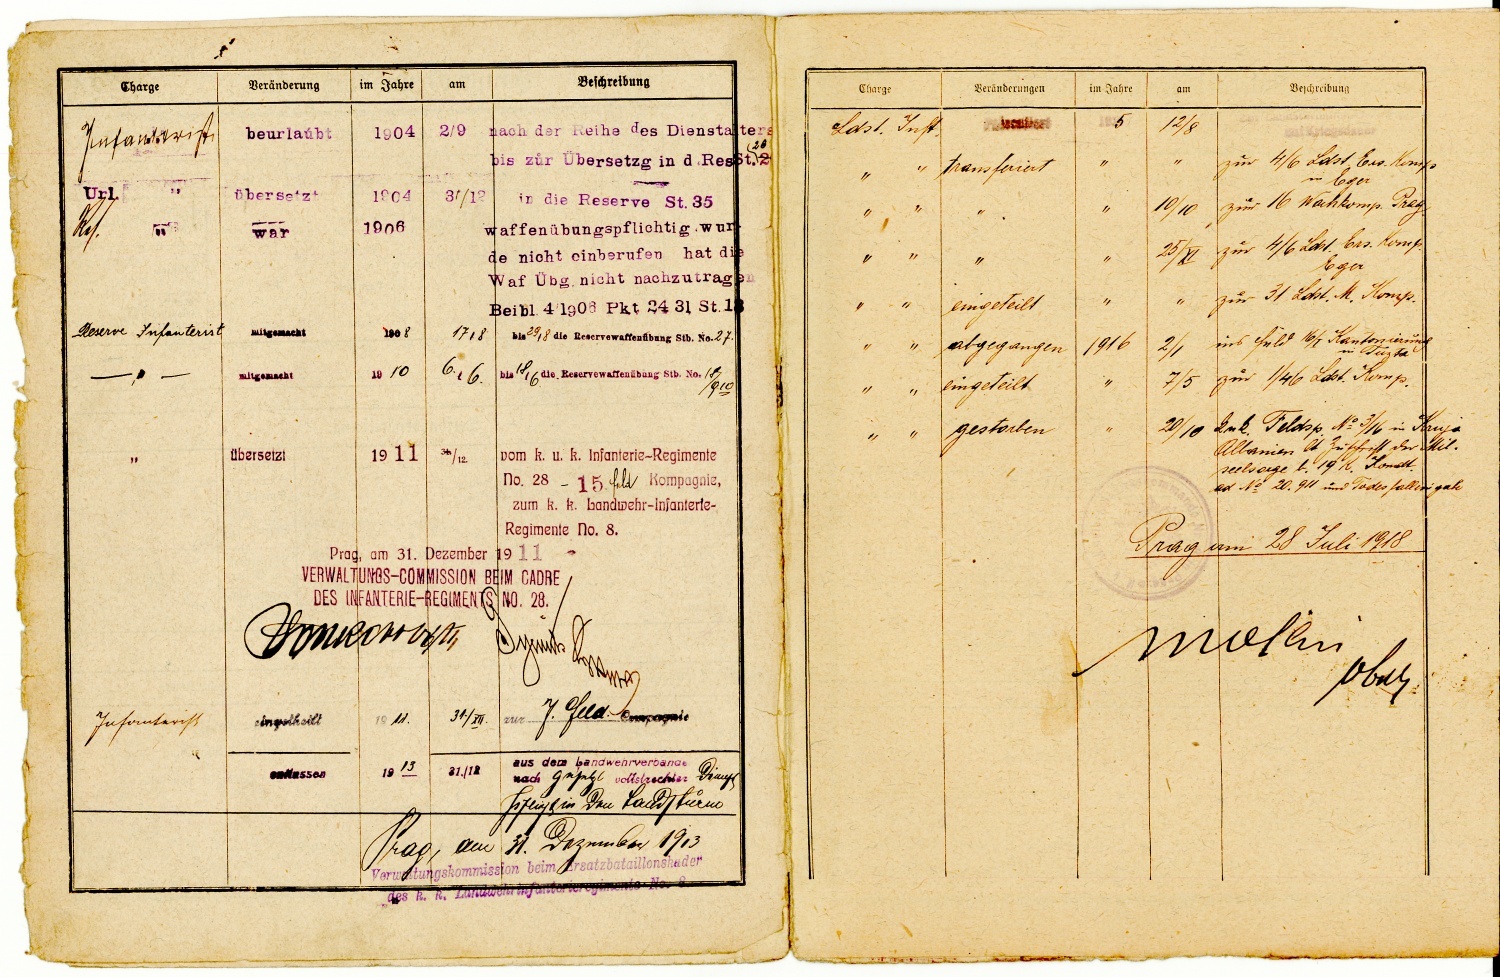 Charge Veränderung im Jahre am Beschreibung
Infanterist beurlaubt 1904 2/9 nach der Reihe des Dienstalters
bis zur Übersetzg in d Res St. 2
Url. " übersetzt 1904 31/12 in die Reserve St. 35
Res. " war 1906 waffenübungspflichtig wur-
de nicht einberufen hat die
Waf Übg. nicht nachzutragen
Beibl 4/1906 Pkt 24 31 St. 18
Reserve Infanterist mitgemacht 1908 17/8 bis 29/8 die Reservewaffenübung Stb. No. 27.
— " — mitgemacht 19 10 6./6. bis 18/6 die Reservewaffenübung Stb. No.
" übersetzt 19 11 31/12. vom k. u. k. Infanterie-Regimente
No. 28 – 15 feld Kompagnie,
zum k. k. Landwehr-Infanterie-
Regimente No. 8.
Prag, am 31. Dezember 19 11
VERWALTUNGS-COMMISSION BEIM CADRE
DES INFANTERIE-REGIMENTS NO. 28.
Infanterist eingetheilt 19 11. 31/XII. zur 7. Feld Compagnie
entlassen 19 13 31./12 aus dem Landwehrverbande
nach Gesetzl vollstreckter Dienst
in den Landsturm
Prag, am 31. Dezember 1913
Verwaltungskommission beim Ersatzbataillonskader
des k. k. Landwehrinfanterieregiments No. 8
Charge Veränderungen im Jahre am Beschreibung
Ldst. Inft. 5 12/8
" " transferiert " " zur 4/6 Ldst. Ers. Komp
in Eger
" " " " 10/10 zur 16 Wachkomp. Prag
" " " " 25/XI zur 4/6 Ldst. Ers. Komp.
Eger
" " eingeteilt " " zur 31 Ldst. M. Komp.
" " abgegangen 1916 2/1 ins Feld 16/1 Kantonierung
in Tuzla
" " eingeteilt " 7/5 zur 1/46 Ldst. Komp.
" " gestorben " 20/10 k.u.k. Feldsp. No 3/16 in Kruja
Albanien lt Zuschrift der Mil.
seelsorge b. 19 K. Komdt.
ad No 20.911 und Todesfallsangabe
Prag am 28 Juli 1918